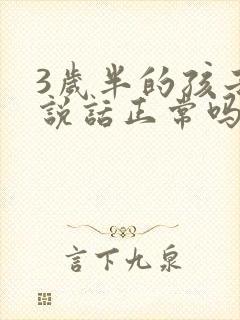 3歲半的孩子
說話正常嗎
言下九泉